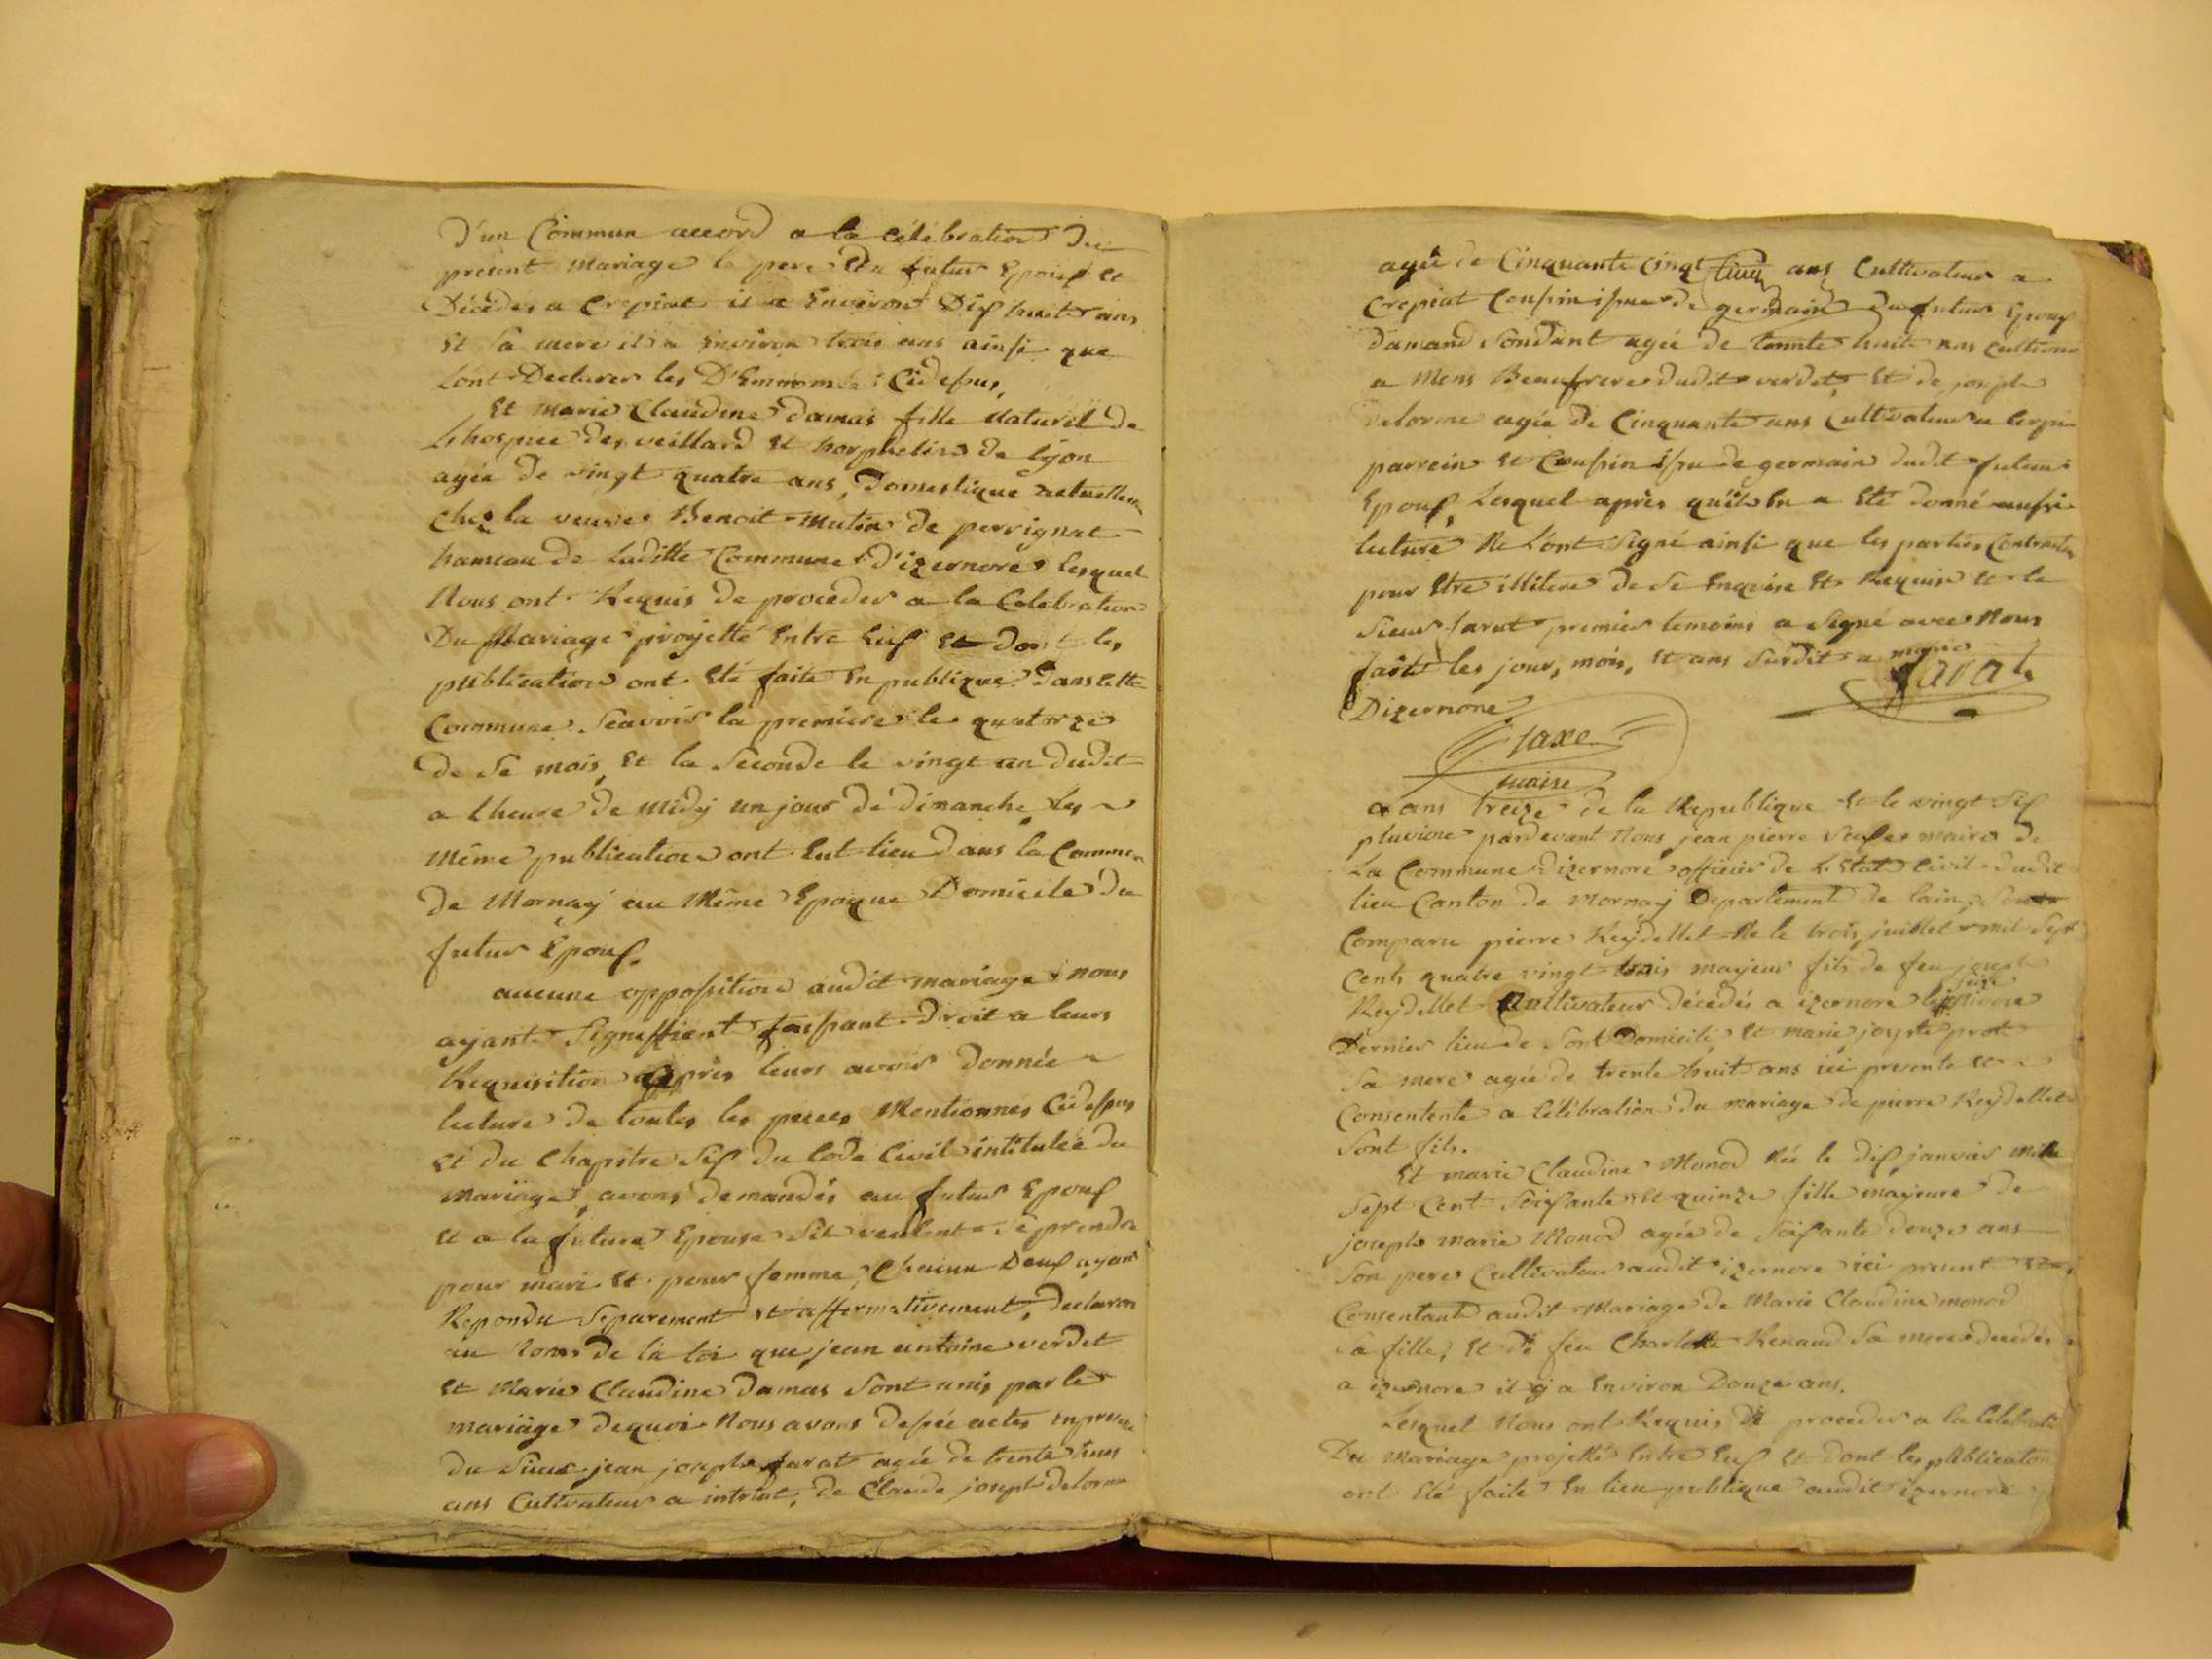 D'un Commun accord a la célébration du
présent mariage le pere du futur Epouf et
Décédes a Crepiat il a Environ Dif huit ans
Et sa mere il a Environ trois ans ainsi que
Lont Declarer les D'Enmommés Cidessus,
Et marie Claudine damas fille Naturél de
Lhospice des veillard et horphelins de lyon
agée de vingt quatre ans, Domestique actuellem
Chez la veuve Benoit Mutin de perrignat
hameau de Laditte Commune D'izernore Lesquel
Nous ont Requis de proceder a la Celebration
Du Mariage projetté Entre Euf et dont les
publication ont Eté faite En publique Dans cette
Commune. Scavoir la premiere le quatorze
de Se mois, Et la Seconde le vingt un dudit
a lheure de midy un jour de dimanche, les
même publication ont Eut lieu Dans la Commune
de Mornay au Même Epoque Domicile du
futur Epouf.
aucune opposition audit mariage nous
ayant Signeffient faisant droit a leurs
Requisition après leurs avoir donnée
lecture de toutes les pieces Mentionnes Cidessus
Et du Chapitre Sif du Code Civil intitulée du
mariage, avons demandés au futur Epouf
Et a la future Epouse Sil veulent Se prendre
pour mari Et pour femme, Chacun Deuf ayant
Repondu Séparement Et affermativement, declaron
au Nom de la loi que jean antoine verdet
Et Marie Claudine damas Sont unis par le
mariage dequoi Nous avons dressé actes En presence
du Sieur jean joseph farat agée de trente
ans Cultivateur a intriat, de Claude joseph delorme
agée de Cinquante Cinqt Cinq ans Cultivateur a
Crepiat Cousin issue de germain du futur Epouf
damand Sondant agée de trente huit ans Cultivateur
a Mens Beaufrere dudit verdet, Et de joseph
delorme agée de Cinquante ans Cultivateur a
parrein Et Cousin issu de germain dudit futur
Epouf, Lesquel après quil En a Eté donné aussi
lecture Ne Lont Signé ainsi que les parties Contractan
pour Etre illitere de Se Enquise Et Requise Et le
Sieur farat premier temoins a Signé avec Nous
fait les jour, mois, Et ans Surdit a mairie
Dizernore
farat
maire
a Lans treize de la Republique Et le vingt Sif
pluviose pardevant Nous jean pierre maire de
La Commune Dizernore officier de L'Etat Civil dudit
lieu Canton de Mornay Departement de lain, Sont
Comparu pierre Reydellet Né le trois juillet mil Sept
Cents quatre vingt trois majeur fils de feu joseph
seize
Reydellet Cultivateur décédés a izernore le nivose
Dernier lieu de Sont Domicile, Et marie joseph prot
Sa mere agée de trente huit ans ici presente et
Consentente a Célébration du mariage de pierre Reydellet
Sont fils.
Et marie Claudine Monod Née le dif janvier mille
Sept Cent Soifante Et quinze fille majeure de
joseph marie Monod agée de Soifante douze ans
Son pere Cultivateur audit izernore ici present Et
Consentant audit Mariage de Marie Claudine monod
Sa fille, Et de feu Charlotte Renaud Sa mere decedée
a izernore il y a Environ Douze ans.
Lesquel Nous ont Requis de proceder a la Celebration
Du Mariage projetté Entre Euf Et dont les publication
ont Eté faite En lieu publique audit izernore